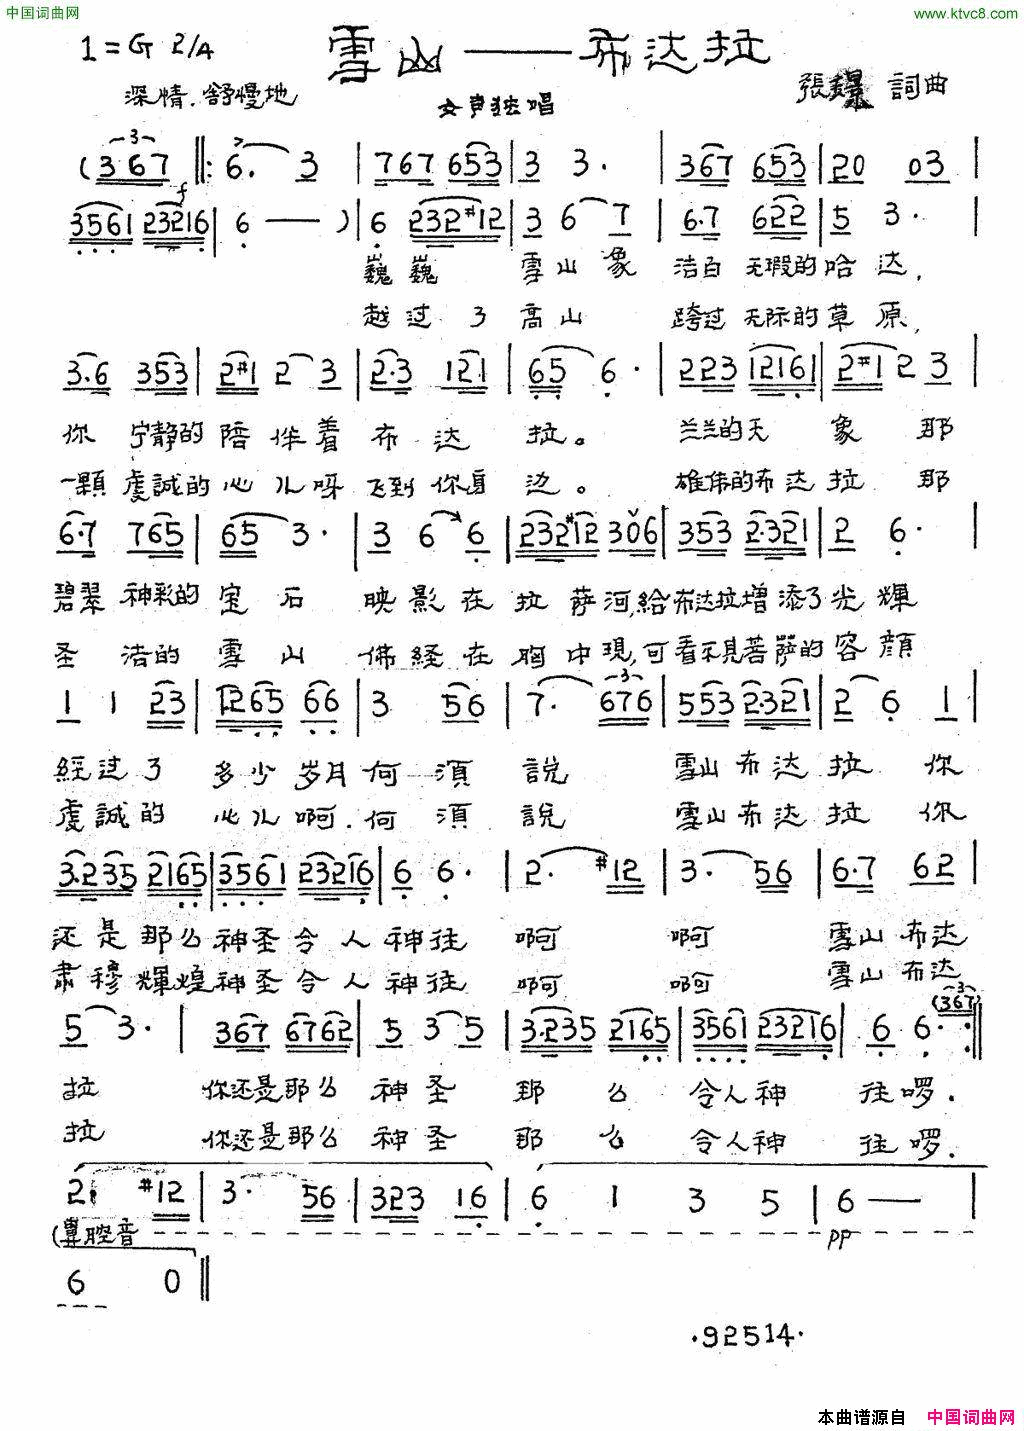 中国词曲网
www.ktvc8.com
1=G 2/4
雪山——布达拉
深情.舒慢地
女声独唱
張 詞曲
(367 ‖: 6. 3 | 767 653 | 3 3. | 367 653 | 20 03 |
f
3561 23216 | 6 — ) | 6 232#12 | 3 6 7 | 6.7 622 | 5 3. |
巍巍 雪山象 洁白 无瑕的哈达,
越过了高山 跨过 无际的草原,
3.6 353 | 2#1 2 3 | 2.3 121 | 65 6. | 223 12161 | 2#1 2 3 |
你 宁静的 陪伴着 布达拉。 兰兰的天 象 那
一顆虔誠的心儿呀飞到你身边。 雄伟的布达拉那
6.7 765 | 65 3. | 3 6 6 | 232#12 306 | 353 2.321 | 2 6. |
碧翠 神彩的宝石 映影在拉萨河,給布达拉增添了光輝
圣洁的雪山 佛経在胸中現,可看不見菩萨的容顔
1 1 23 | 1265 66 | 3 56 | 7. 676 | 553 2.321 | 2 6 1 |
3
經过了 多少岁月何須說 雪山布达拉你
虔誠的 心儿啊.何須說 雪山布达拉你
3.235 2165 | 3561 23216 | 6 6. | 2. #12 | 3. 56 | 6.7 62 |
还是那么神圣令人神往 啊 啊 雪山布达
肃穆輝煌神圣令人神往 啊 啊 雪山布达
(367)
5 3. | 367 6762 | 5 3 5 | 3.235 2165 | 3561 23216 | 6 6. :‖
拉 你还是那么神圣 那么 令人神往啰.
拉 你还是那么神圣 那么 令人神往啰.
2. #12 | 3. 56 | 323 16 | 6 1 3 5 | 6 — |
(鼻腔音 pp
6 0 ‖
·92514·
本曲谱源自 中国词曲网